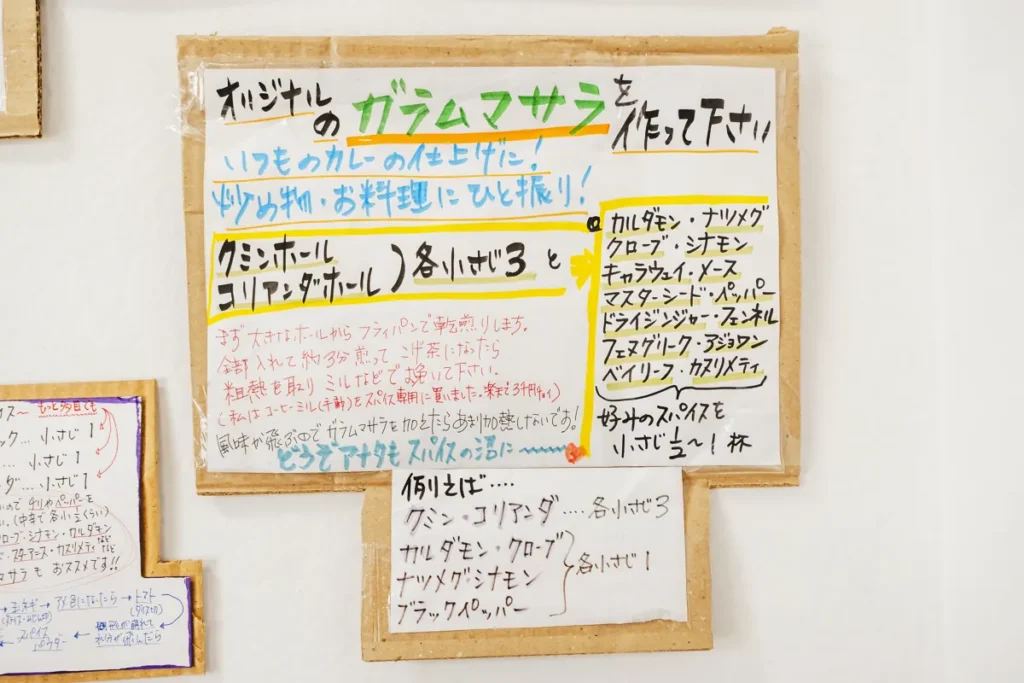 オリジナルの ガラムマサラを作って下さい
いつものカレーの仕上げに!
炒め物・お料理にひと振り!
クミンホール
コリアンダホール ) 各小さじ3 と
カルダモン・ナツメグ
クローブ・シナモン
キャラウェイ・メース
マスターシード・ペッパー
ドライジンジャー・フェンネル
フェヌグリーク・アジョワン
ベイリーフ・カスリメティ
好みのスパイスを
小さじ1/2〜1杯
まず大きなホールからフライパンで乾煎りします。
全部入れて約3分煎って こげ茶になったら
粗熱を取り ミルなどで挽いて下さい。
(私はコーヒーミル(手動)をスパイス専用に買いました。楽天で3千円チョイ)
風味が飛ぶので ガラムマサラを加えたらあまり加熱しないです!
どうぞアナタもスパイスの沼に〜
例えば‥‥
クミン・コリアンダ‥‥各小さじ3
カルダモン・クローブ
ナツメグ・シナモン
ブラックペッパー
各小さじ1
もっと多目でも
小さじ1
小さじ1
小さじ1
ので チリやペッパーを
シナモン・カルダモン
スターアニス・カスリメティ など
マサラも おススメです!!
玉ネギ → アメ色になったら → トマト
スパイス
パウダー
水分が飛んだら